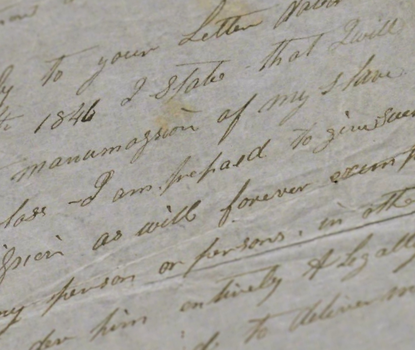 to your Letter
th 1846 I State that I will
manumassion of my slave
class - I am prepared to give such
as will forever exempt
my person or persons, in othe
him entirely & legally
to deliver